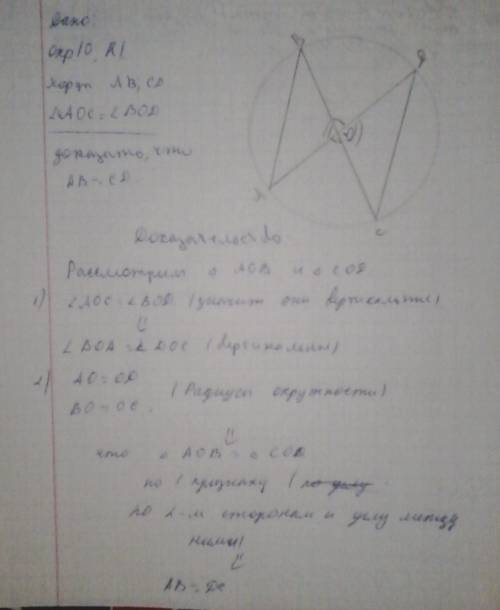 Дано:
Окр(О, R)
хорды АВ, CD
∠AOC = ∠BOD
доказать, что
AB = CD.
B
D
O
A
C
Доказательство
Рассмотрим △ AOB и △ COD
1) ∠AOC = ∠BOD (значит они вертикальные)
⇓
∠BOA = ∠DOC (вертикальны)
2) AO = OD
BO = OC. (Радиусы окружности)
⇓
что △ AOB = △ COD
по 1 признаку (по углу
по 2-м сторонам и углу между
ними)
⇓
AB = DC